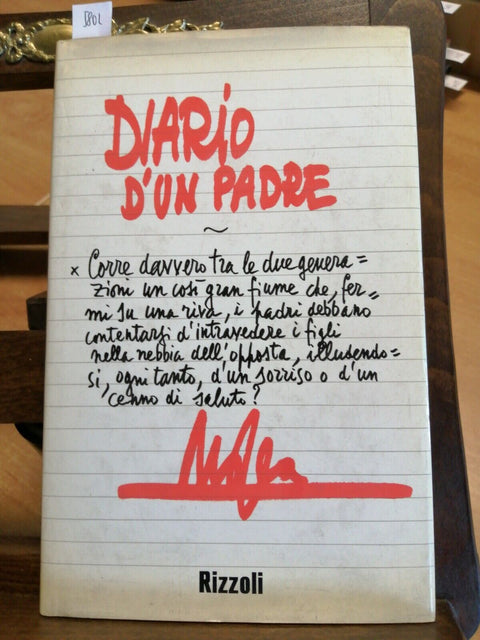 5802
DIARIO
D'UN PADRE
~
x Corre davvero tra le due genera=
zioni un così gran fiume che, fer=
mi su una riva, i padri debbano
contentarsi d'intravedere i figli
nella nebbia dell'opposta, illudendo=
si, ogni tanto, d'un sorriso o d'un
cenno di saluto?
Rizzoli